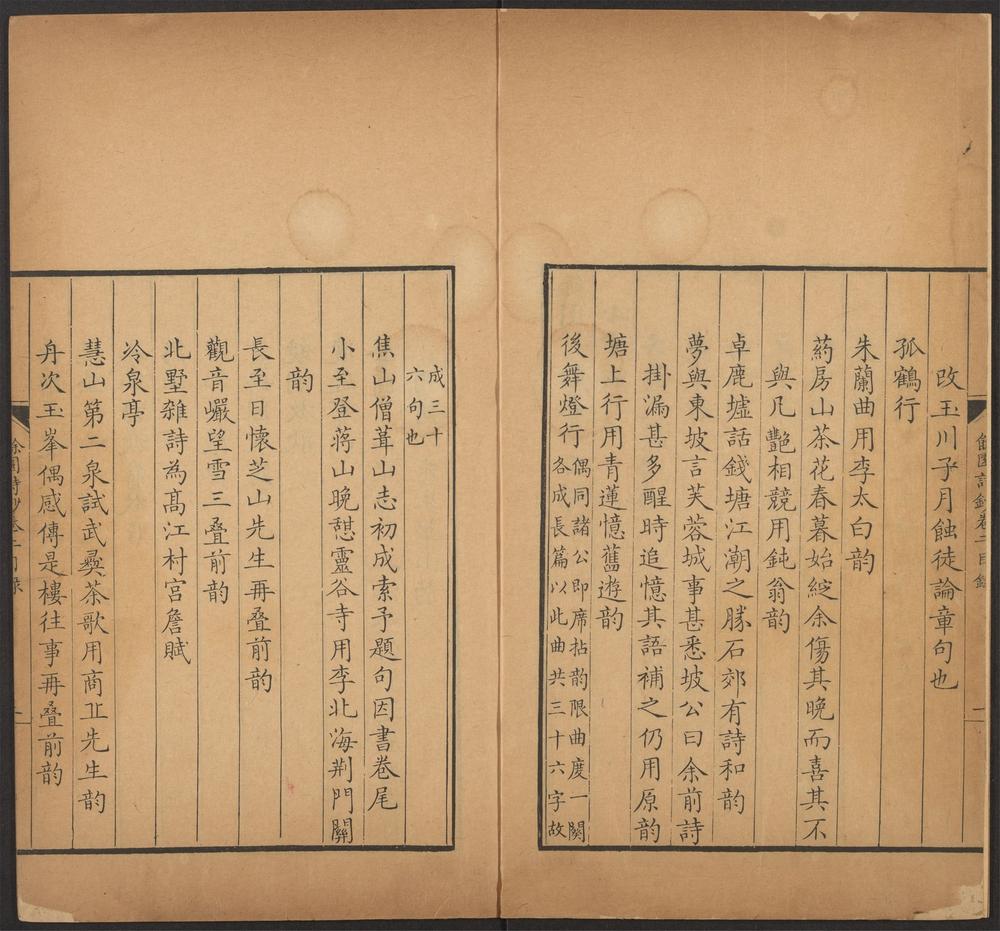 攺玉川子月蝕徒論章句也
孤鶴行
朱蘭曲用李太白韵
葯房山茶花春暮始綻余傷其晚而喜其不
與凡豔相競用鈍翁韵
卓鹿墟話錢塘江潮之勝石郊有詩和韵
夢與東坡言芙蓉城事甚悉坡公曰余前詩
掛漏甚多醒時追憶其語補之仍用原韵
塘上行用青蓮憶舊遊韵
後舞燈行
偶同諸公即席拈韵限曲度一闋
各成長篇以此曲共三十六字故
成三十
六句也
焦山僧葺山志初成索予題句因書卷尾
小至登蔣山晚憇靈谷寺用李北海荆門關
韵
長至日懷芝山先生再叠前韵
觀音巗望雪三叠前韵
北墅雜詩為髙江村宫詹賦
冷泉亭
慧山第二泉試武彛茶歌用商丘先生韵
舟次玉峯偶感傳是樓往事再叠前韵